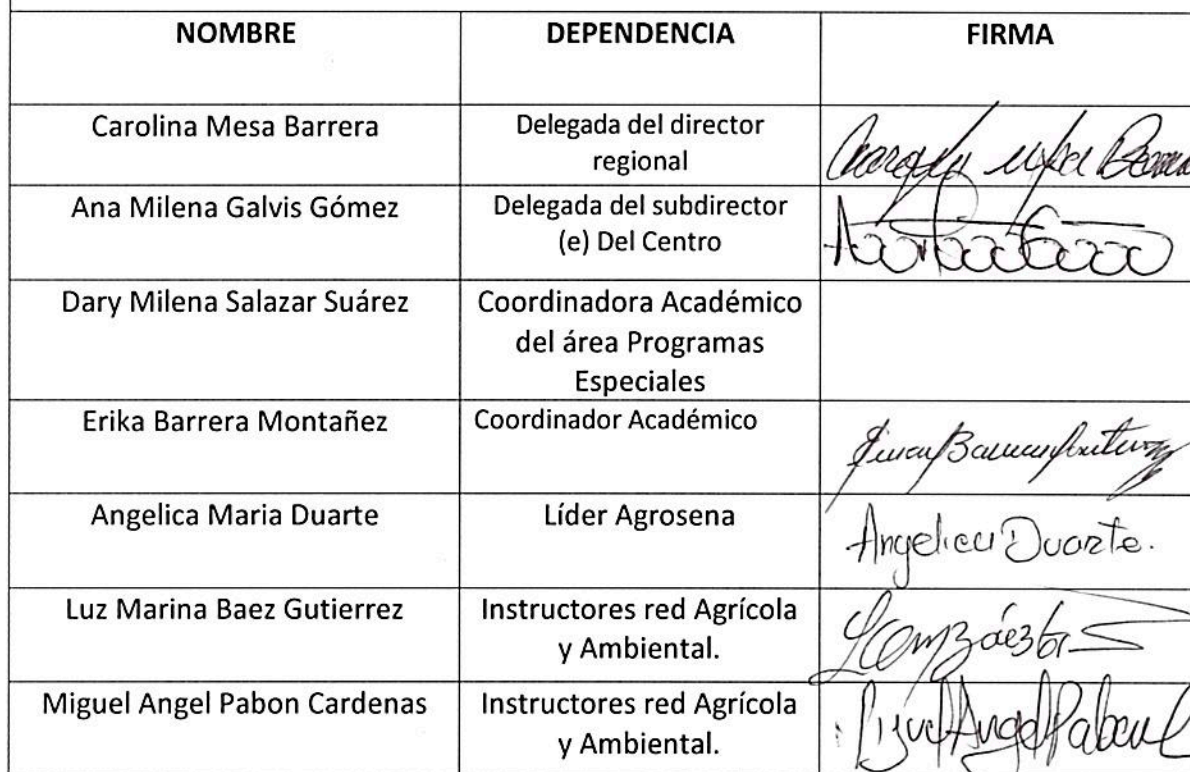 NOMBRE DEPENDENCIA FIRMA
Carolina Mesa Barrera Delegada del director
regional
Ana Milena Galvis Gómez Delegada del subdirector
(e) Del Centro
Dary Milena Salazar Suárez Coordinadora Académico
del área Programas
Especiales
Erika Barrera Montañez Coordinador Académico
Angelica Maria Duarte Líder Agrosena Angelica Duarte.
Luz Marina Baez Gutierrez Instructores red Agrícola
y Ambiental.
Miguel Angel Pabon Cardenas Instructores red Agrícola Miguel Angel Pabon C
y Ambiental.